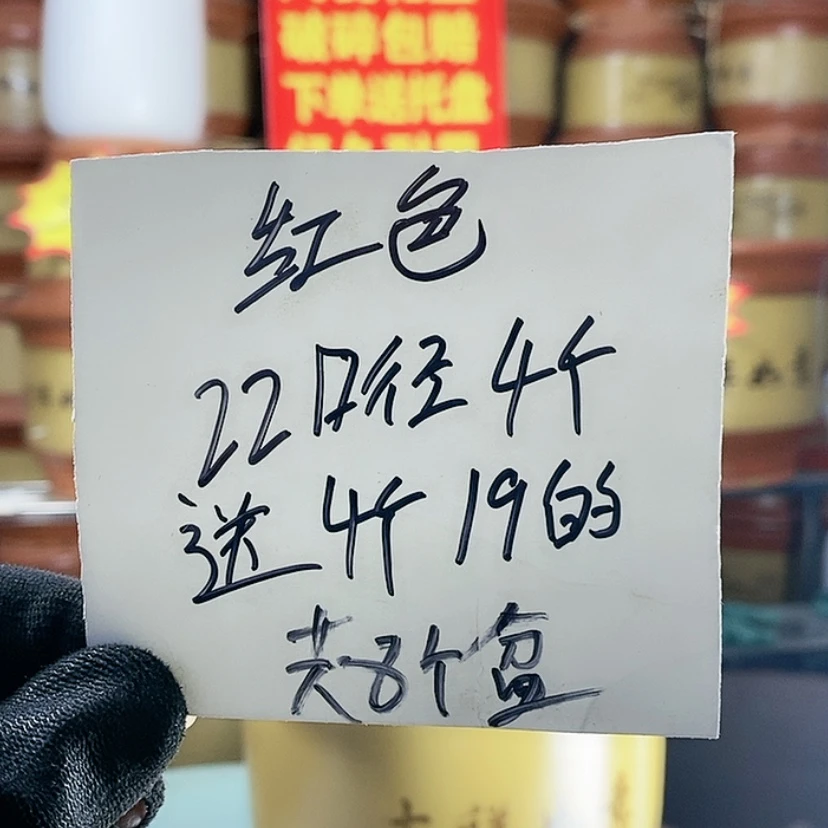 破碎包赔
下单送托盘
红色
22口径4个
送4个19的
共8个盆